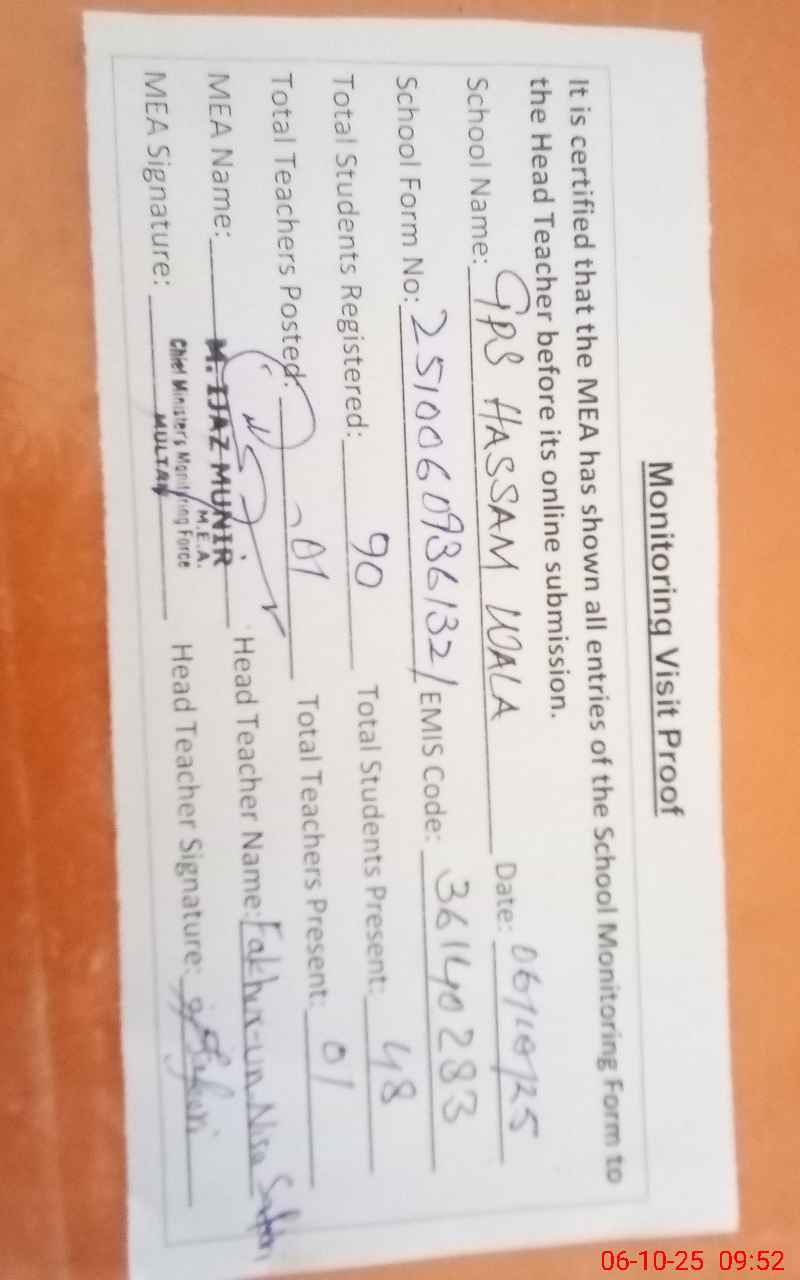 Monitoring Visit Proof
It is certified that the MEA has shown all entries of the School Monitoring Form to
the Head Teacher before its online submission.
School Name: GPS HASSAM WALA Date: 06/10/25
School Form No: 2510060936132/ EMIS Code: 36140283
Total Students Registered: 90 Total Students Present: 48
Total Teachers Posted: 01 Total Teachers Present: 01
MEA Name: M. IJAZ MUNIR Head Teacher Name: Fakhur-un-Nisa
M.E.A.
Chief Minister's Monitoring Force
MULTAN
MEA Signature: Head Teacher Signature:
06-10-25 09:52